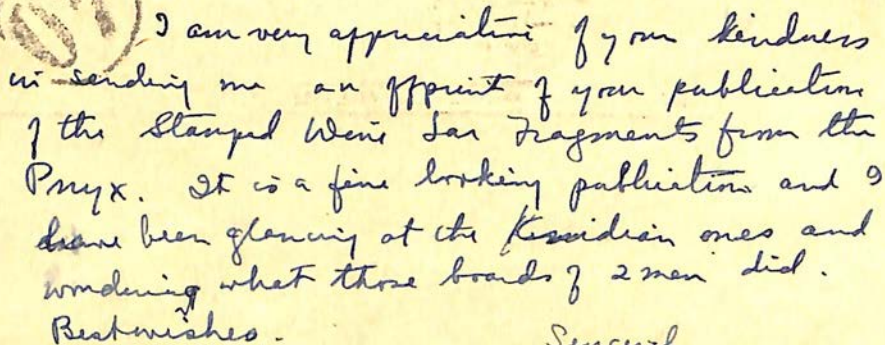 I am very appreciative of your kindness
in sending me an offprint of your publication
of the Stamped Wine Jar Fragments from the
Pnyx. It is a fine looking publication and I
have been glancing at the Knidian ones and
wondering what those boards of 2 men did.
Best wishes.